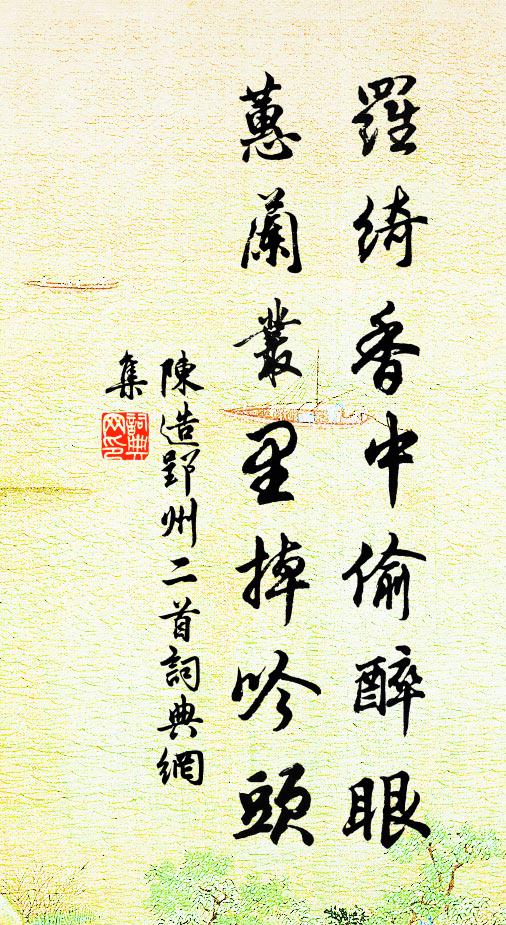 羅綺香中偷醉眼
蕙蘭叢里掉吟頭
陳造郢州二首詞典網
集
詞典
网印